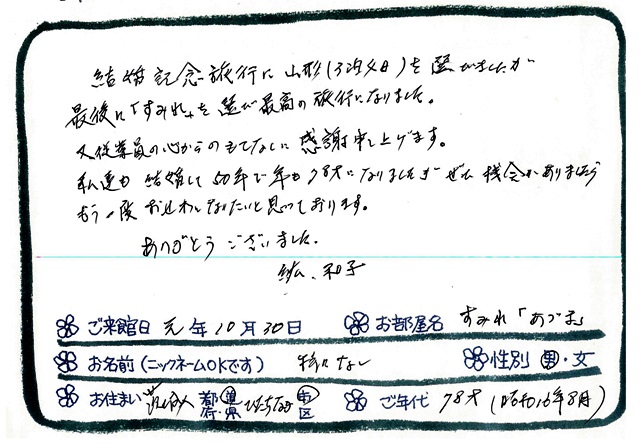 結婚記念旅行に山形(3泊4日)を選びましたが
最後に「すみれ」を選び最高の旅行になりました。
又従業員の心からのもてなしに感謝申し上げます。
私達も結婚して50年で年も78才になりましたがぜひ機会がありましたら
もう一度おせわになりたいと思っております。
ありがとうございました。
和子
ご来館日 元年10月30日 お部屋名 すみれ「あづま」
お名前(ニックネームOKです) 特になし 性別 男・女
お住まい 茨城 都道府県 ひたちなか 市区 ご年代 78才(昭和16年8月)